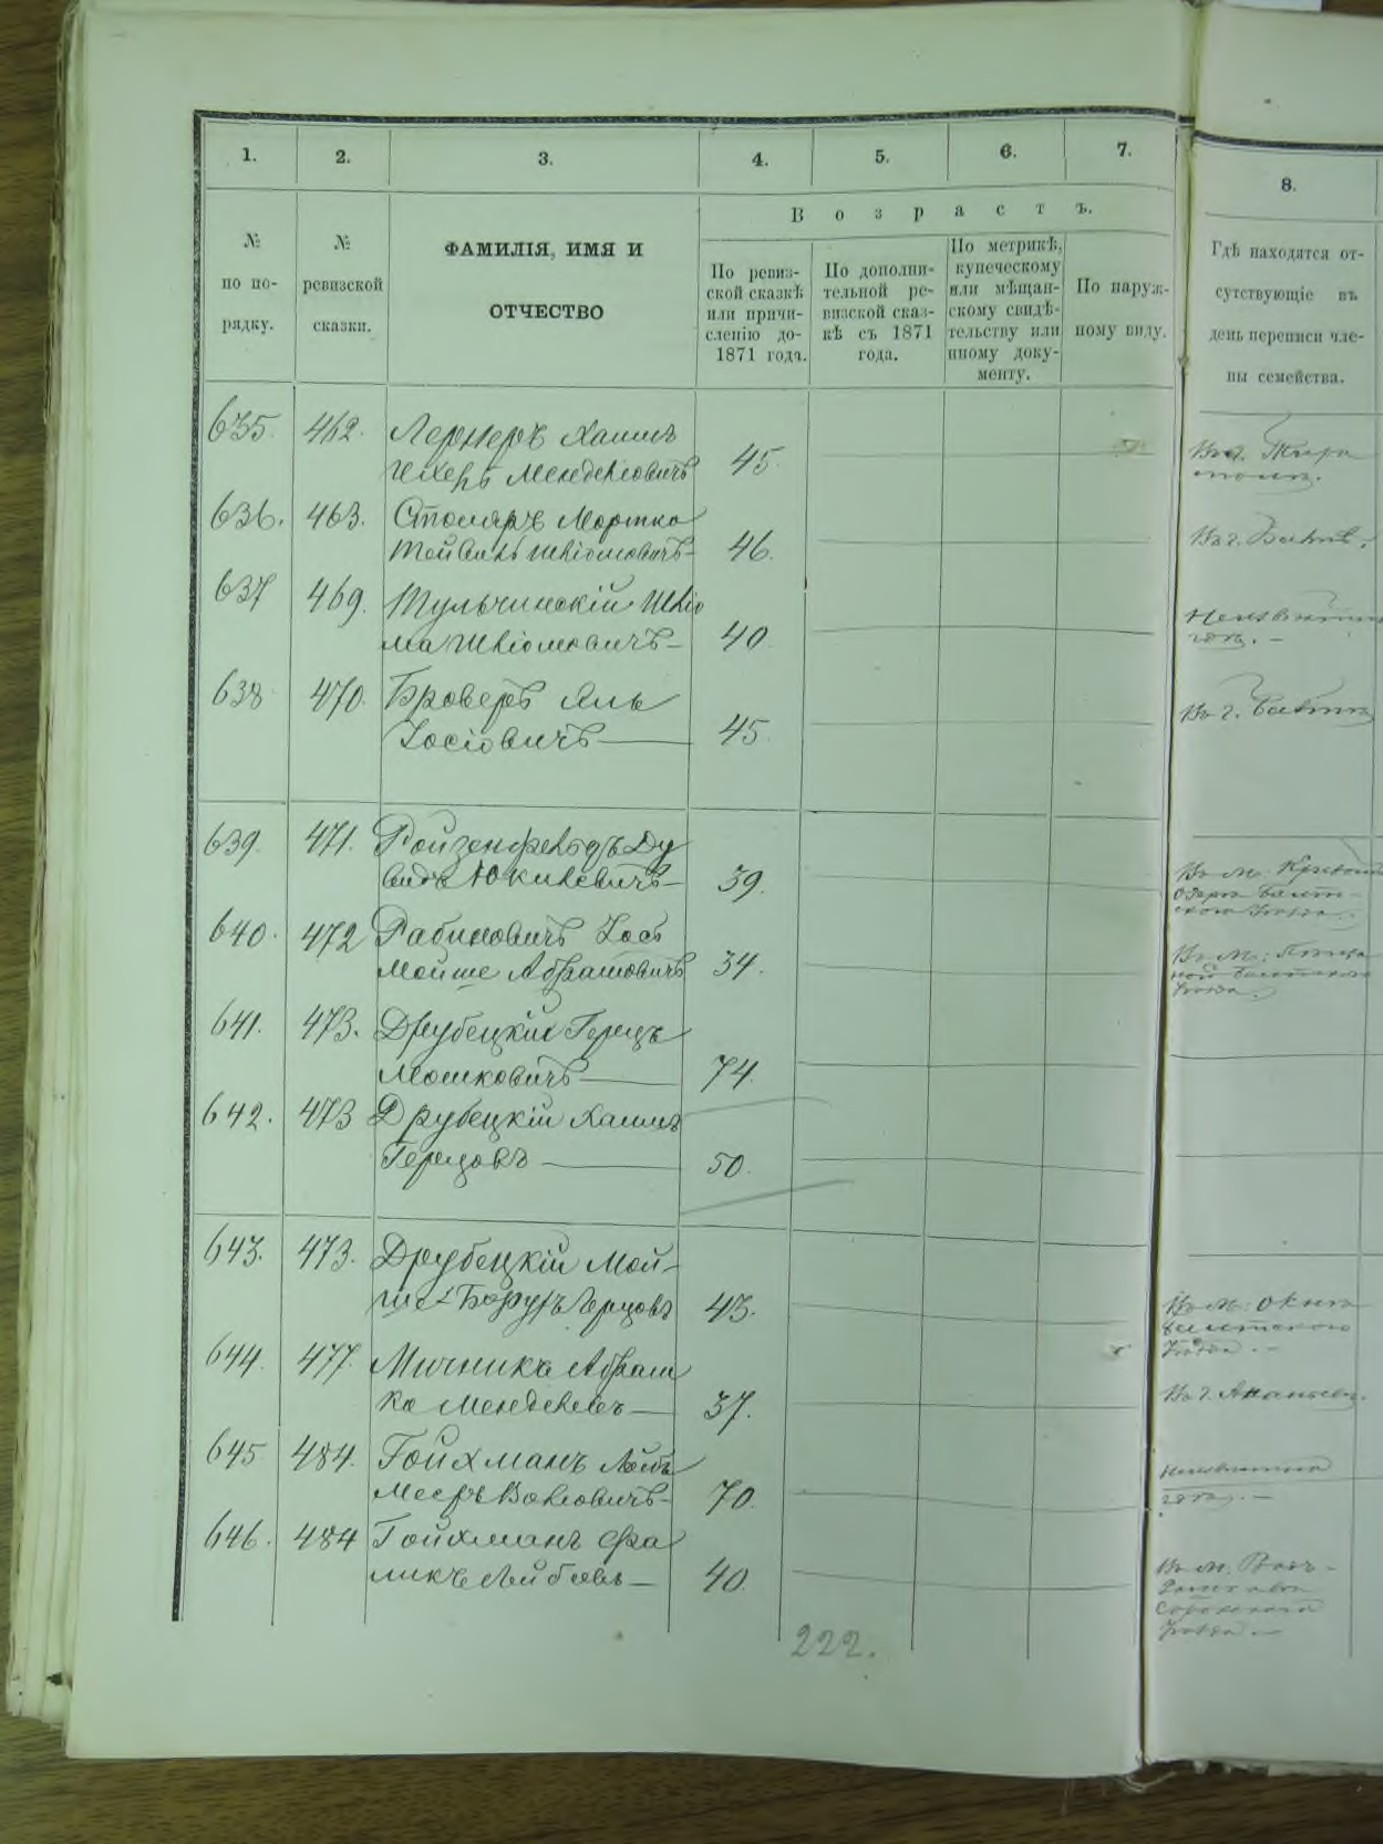 1.
2.
3.
4.
5.
6.
7.
8.
№
по по-
рядку.
№
ревизской
сказки.
ФАМИЛІЯ, ИМЯ И
ОТЧЕСТВО
Возрастъ.
По ревиз-
ской сказкѣ
или причи-
сленію до-
1871 года.
По дополни-
тельной ре-
визской сказ-
кѣ съ 1871
года.
По метрикѣ,
купеческому
или мѣщан-
скому свидѣ-
тельству или
иному доку-
менту.
По наруж-
ному виду.
Гдѣ находятся от-
сутствующіе въ
день переписи чле-
ны семейства.
635. 462. Лернеръ Хаимъ
Менделіовичъ 45.
636. 463. Столяръ Мортко
Шліомовичъ 46.
637 469. Тульчинскій Шліо
ма Шліомовичъ 40
Неизвѣстно
гдѣ.
638 470. Броверъ
Іосіовичъ 45.
639. 471. Ройзенфельдъ Ду
видъ Юкилевичъ 39.
640. 472 Рабиновичъ Іось
Мойше Абрамовичъ 34.
641. 473. Друбецкій Герцъ
Мошковичъ 74.
642. 473 Друбецкій Хаимъ
Герцовъ 50.
643. 473. Друбецкій Мой-
ше Борухъ Герцовъ 43.
Въ м. Окны
Балтского
уѣзда.
644. 477. Мичникъ Абрам
ко Менделевъ 37.
Въ г. Ананьевѣ.
645 484. Гойхманъ Лейбъ
Мееръ Волювичъ 70.
Неизвѣстно
гдѣ.
646. 484 Гойхманъ Фа
ликъ Лейбовъ 40.
222.